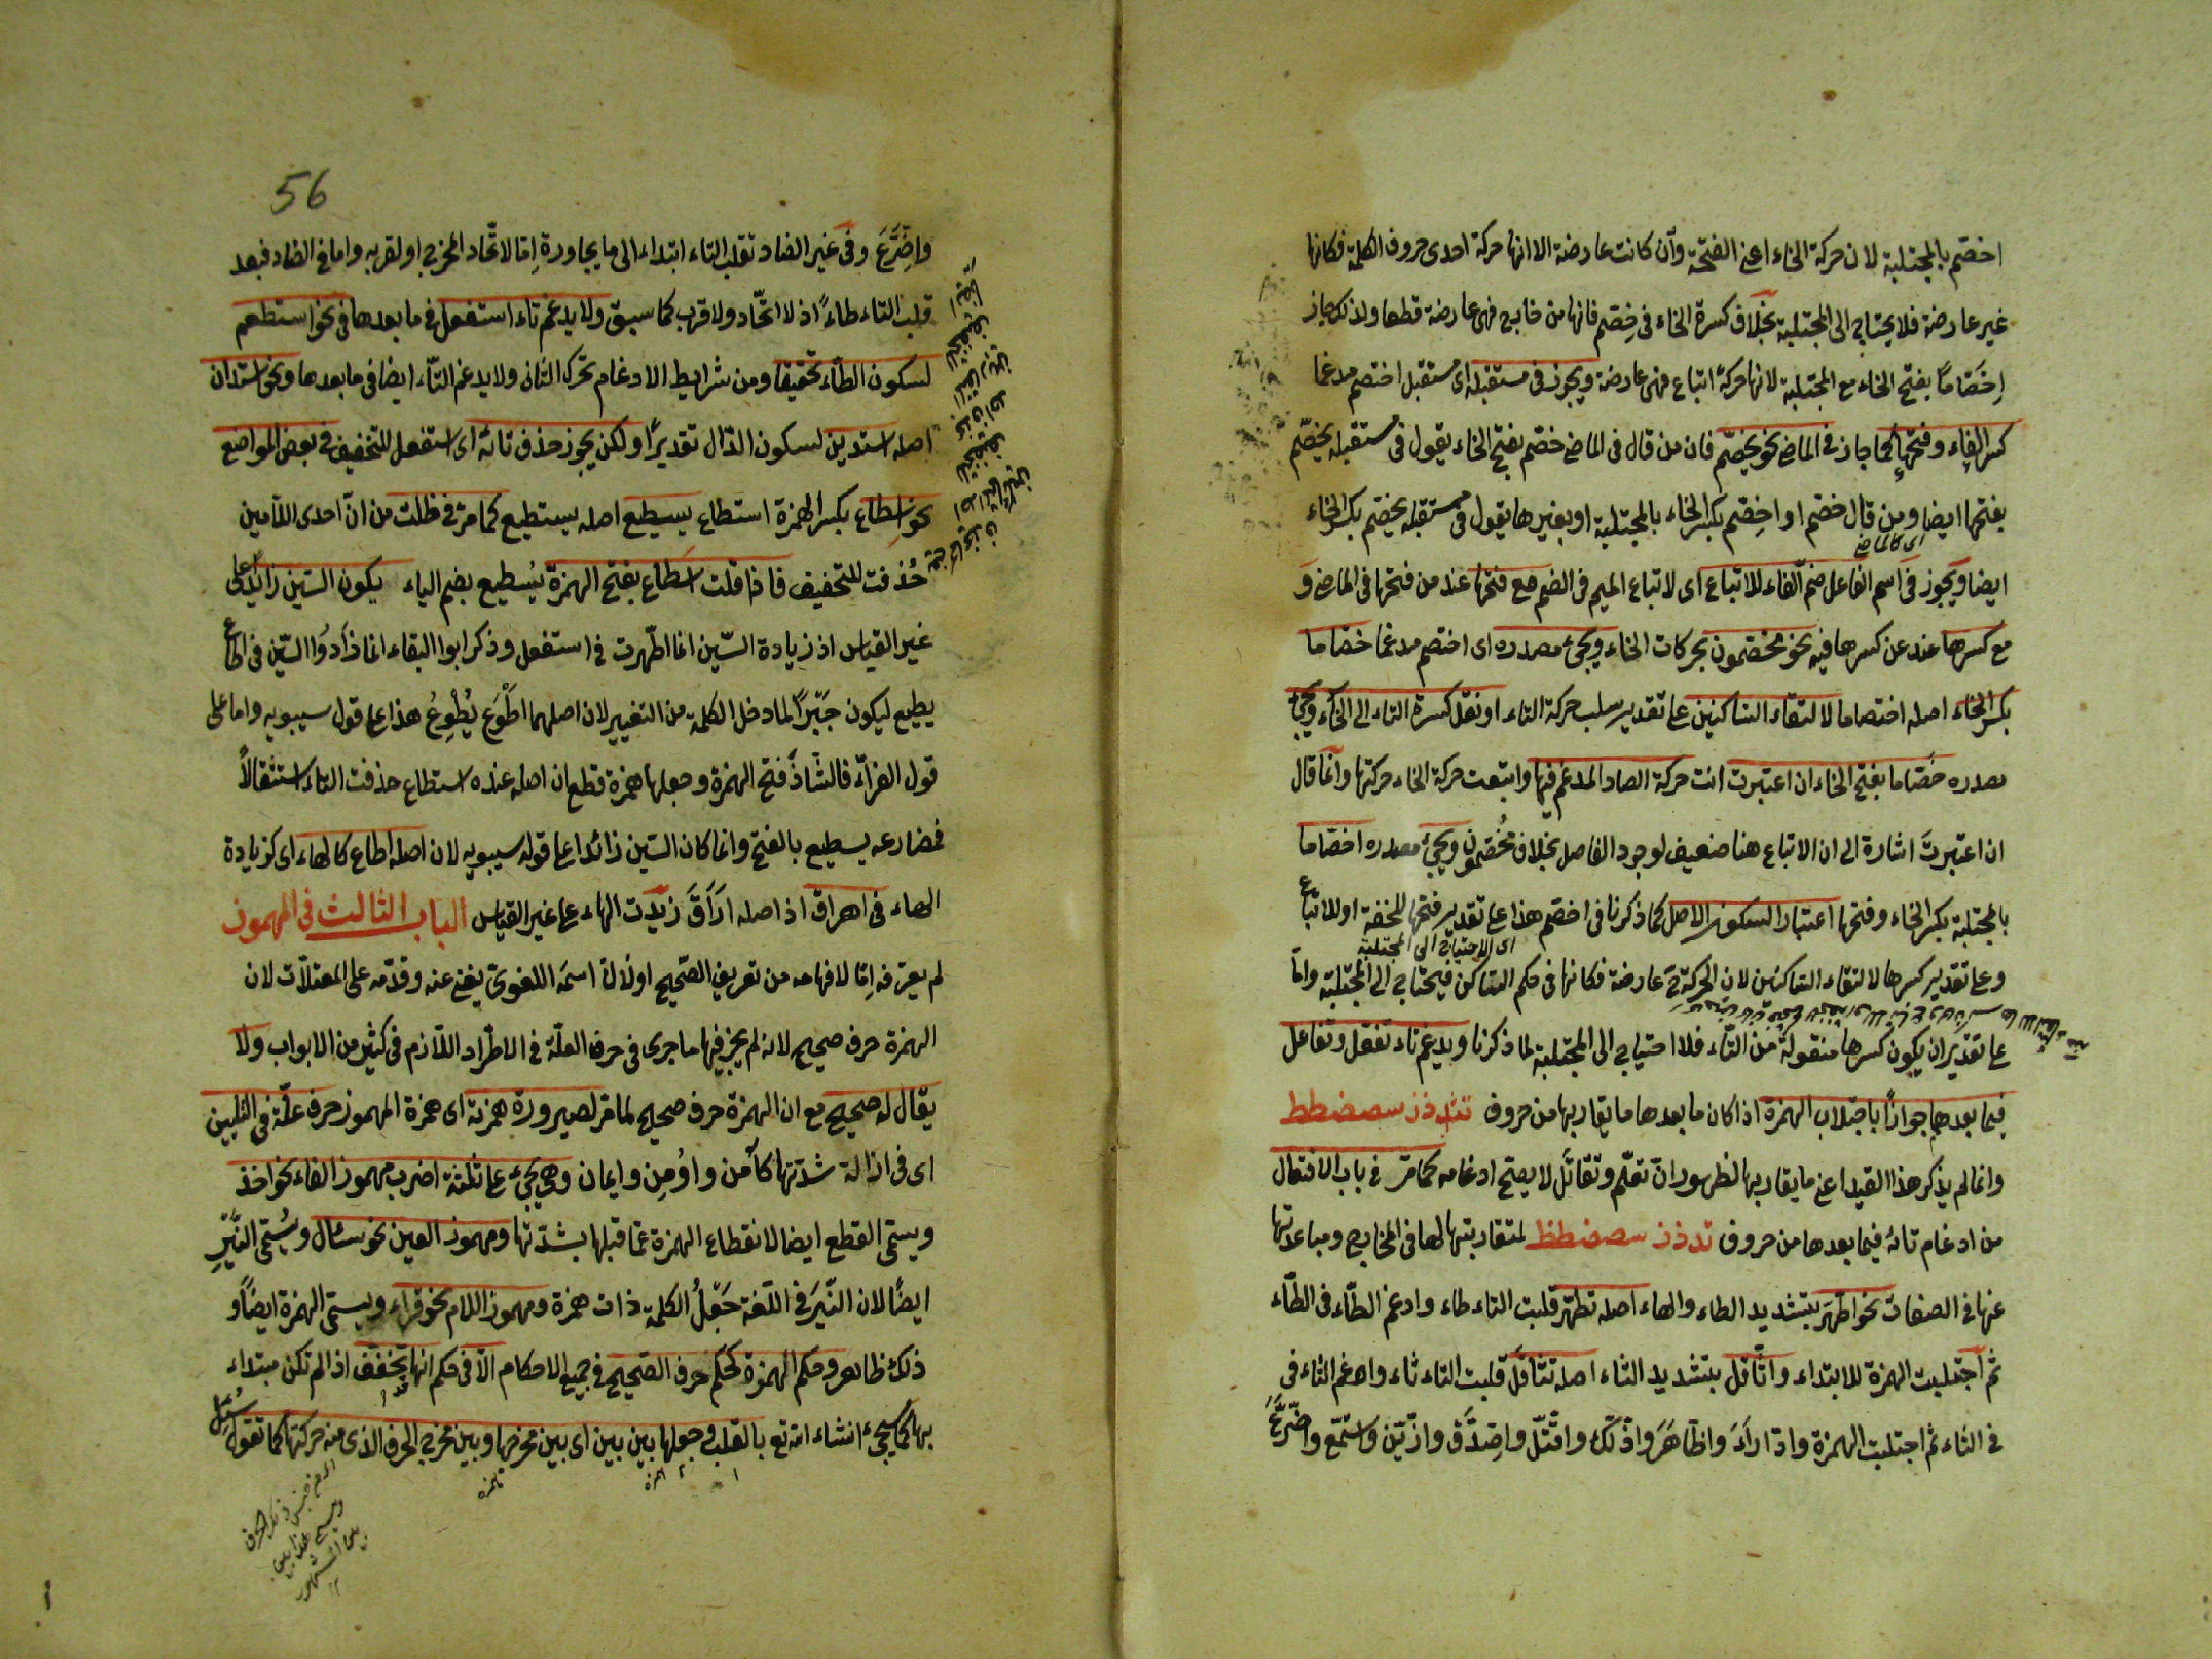 اخصّم بالمجتلبة لان حركة الخاء اعنى الفتحة وان كانت عارضة الا انها حركة احدى حروف الكلمة فكانها
غير عارضة فلا يحتاج الى المجتلبة بخلاف كسرة الخاء فى خِصّم فانها من خارج فهى عارضة قطعا ولذلك جاز
اِخَصّاماً بفتح الخاء مع المجتلبة لانها حركة اتباع فهى عارضة ويجوز فى مستقبله اى مستقبل اختصم مدغما
كسر الفاء وفتحها كما جاز فى الماضى نحو يخصّم فان من قال فى الماضى خصّم بفتح الخاء يقول فى مستقبله يخصّم
بفتحها ايضا ومن قال خصّم او اخِصّم بكسر الخاء بالمجتلبة او بغيرها يقول فى مستقبله يخصّم بكسر الخاء
اى كالماضى
ايضا ويجوز فى اسم الفاعل ضمّ الفاء للاتباع اى لاتباع الميم فى الضم مع فتحها عند من فتحها فى الماضى و
مع كسرها عند من كسرها فيه نحو مخصّمون بحركات الخاء ويجئ مصدره اى اختصم مدغما خصّاما
بكسر الخاء اصله اختصاما لالتقاء الساكنين على تقدير سلب حركة التاء او نقل كسرة التاء الى الخاء ويجئ
مصدره خَصّاما بفتح الخاء ان اعتبرت انت حركة الصاد المدغم فيها واتبعت حركة الخاء حركتها وانما قال
ان اعتبرتَ اشارة الى ان الاتباع هنا ضعيف لوجود الفاصل بخلاف مُخُصّمون ويجئ مصدره اخصّاما
بالمجتلبة بكسر الخاء وفتحها اعتبارا لسكون الاصل كما ذكرنا فى اخصّم هذا على تقدير فتحها للخفة او للاتباع
اى الاحتياج الى المجتلبة
وعلى تقدير كسرها لالتقاء الساكنين لان الحركة ح عارضة فكانها فى حكم الساكن فيحتاج الى المجتلبة واما
على تقدير ان يكون كسرها منقولة من التاء فلا احتياج الى المجتلبة لما ذكرنا ويدغم تاء تفعّل وتفاعل
فيما بعدها جوازاً باجتلاب الهمزة اذا كان ما بعدها ما يقاربها من حروف تثدذز سصضطظ
وانما لم يذكر هذا القيد اعنى ما يقاربها لظهور انّ تعلّم وتقاتَل لا يصح ادغامه كما مرّ فى باب الافتعال
من ادغام تائه فيما بعدها من حروف تدذز سصضطظ لمتقاربتها لها فى المخارج ومباعدتها
عنها فى الصفات نحو اطّهر بتشديد الطاء والهاء اصله تطهّر قلبت التاء طاء وادغم الطّاء فى الطّاء
ثم اجتلبت الهمزة للابتداء واثّاقل بتشديد الثاء اصله تثاقل قلبت التاء ثاء وادغم الثاء فى
فى الثاء ثم اجتلبت الهمزة وادّاراَءَ واظّاهَرَ واذّكّر واقتّل واصّدّق وازّيّن واسّمّع واضّرّع
56
واضّرّعَ وفى غير الضاد تقلب التاء ابتداء الى ما يجاورة اِمّا لاتّحاد المخرج او لقربه واما فى الضاد فبعد
قلب التاء طاءً اذ لا اتّحاد ولا قرب كما سبق ولا يدغم تاء استفعل فى ما بعدها فى نحو استطعم
لسكون الطّاء تحقيقا ومن شرايط الادغام تحرك الثانى ولا يدغم التّاء ايضا فى ما بعدها ونحو استدان
اصله استدين لسكون الدال تقديرًا ولكن يجوز حذف تائه اى استفعل للتخفيف فى بعض المواضع
نحو اِسْطاع بكسر الهمزة استطاع يسطيع اصله يستطيع كما مرّ فى ظلت من انّ احدى اللامين
حُذفت للتخفيف فاذا قلت اَسْطاع بفتح الهمزة يُسْطيع بضم الياء يكون السّين زايدًا على
غير القياس اذ زيادة السّين انما اطّهرت فى استفعل وذكر ابوا البقاء انما زاَدُوا السّين فى اطاع
يطيع ليكون جَبْرًا لما دخل الكلمة من التغيير لان اصلهما اطْوَع يُطْوِعُ هذا على قول سيبويه واما على
قول الفرّاء فالشّاذّ فتح الهمزة وجعلها همزة قطع ان اصله عنده استطاع حذفت التاء استثقالاً
فمضارعه يسطيع بالفتح وانما كان السّين زائدا على قوله سيبويه لان اصله اطاع كالهاء اى كزيادة
الهاء فى اهراق اذ اصله اَرَاقَ زيدت الهاء على غير القياس الباب الثالث فى المهموز
لم يعرّفه اِمّا لانفهامه من تعريف الصحيح او لان اسمَه اللغوىّ يغنى عنه وقدّمه على المعتلّات لان
الهمزة حرف صحيح لانه لم يجز فيها ما جرى فى حرف العلّة فى الاطّراد اللّازم فى كثير من الابواب ولا
يقال له صحيح مع ان الهمزة حرف صحيح لما مرّ لصيرورة همزته اى همزة المهموز حرف علّة فى التليين
اى فى ازالة شدّتها كآمن واوُمِن وايمان وهى يجئ على ثلثة اضرب مهموز الفاء نحو اخذ
ويسمّى القطع ايضا لانقطاع الهمزة عمّا قبلها بشدّتها ومهموز العين نحو سئال ويُسمّى النّبْر
ايضًا لان النّبرَ فى اللّغة جَعْلُ الكلمة ذات همزة ومهموز اللام نحو قراء ويسمّى الهمزة ايضًا و
ذلك ظاهر وحكم الهمزة كحكم حرف الصّحيح فى جميع الاحكام الّا فى حكم انها تخفّف اذا لم تكن مبتداء
بها كما سيجئ انشاء الله تع بالقلب وجعلها بين بين اى بين مخرجها وبين مخرج الحرف الذى منه حركتها كما تقول سُئِل